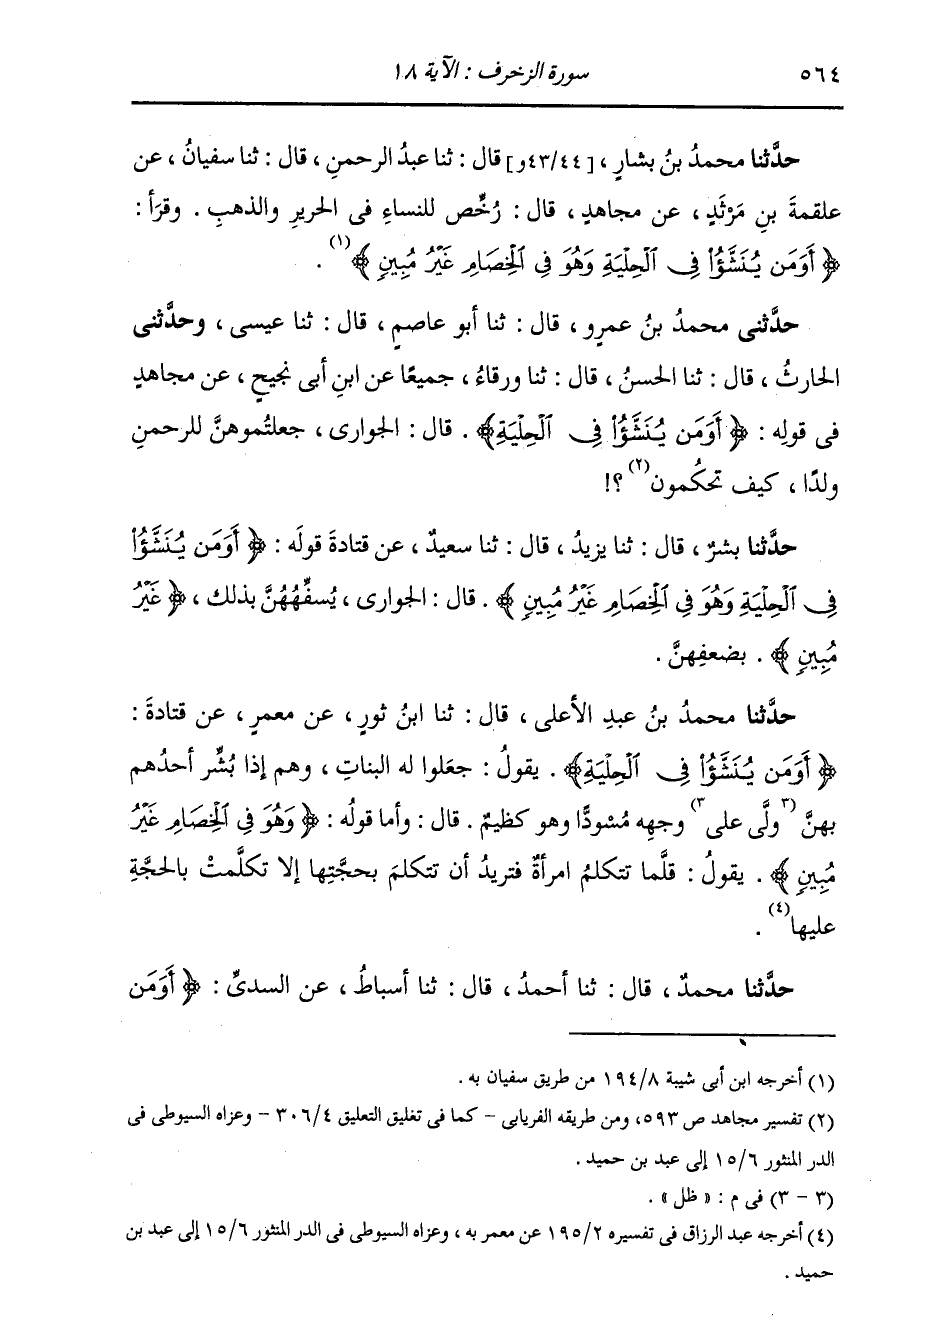 ٥٦٤ سورة الزخرف : الآية ١٨
حدَّثنا محمدُ بنُ بشارٍ ، [٤٣/٤٤و] قال : ثنا عبدُ الرحمنِ ، قال : ثنا سفيانُ ، عن
علقمةَ بنِ مَرْثَدٍ ، عن مجاهدٍ ، قال : رُخِّص للنساءِ فى الحريرِ والذهبِ . وقرَأ :
﴿ أَوَمَن يُنَشَّؤُا۟ فِى ٱلْحِلْيَةِ وَهُوَ فِى ٱلْخِصَامِ غَيْرُ مُبِينٍ ﴾(١) .
حدَّثنى محمدُ بنُ عمرٍو ، قال : ثنا أبو عاصمٍ ، قال : ثنا عيسى ، وحدَّثنى
الحارثُ ، قال : ثنا الحسنُ ، قال : ثنا ورقاءُ ، جميعًا عن ابنِ أبى نجيحٍ ، عن مجاهدٍ
فى قولِه : ﴿ أَوَمَن يُنَشَّؤُا۟ فِى ٱلْحِلْيَةِ﴾ . قال : الجوارى ، جعلتُموهنَّ للرحمنِ
ولدًا ، كيف تحكُمون(٢) ؟!
حدَّثنا بشرٌ ، قال : ثنا يزيدُ ، قال : ثنا سعيدٌ ، عن قتادةَ قولَه : ﴿ أَوَمَن يُنَشَّؤُا۟
فِى ٱلْحِلْيَةِ وَهُوَ فِى ٱلْخِصَامِ غَيْرُ مُبِينٍ ﴾ . قال : الجوارى ، يُسفِّهُهُنَّ بذلك ، ﴿ غَيْرُ
مُبِينٍ ﴾ . بضعفِهنَّ .
حدَّثنا محمدُ بنُ عبدِ الأعلى ، قال : ثنا ابنُ ثورٍ ، عن معمرٍ ، عن قتادةَ :
﴿ أَوَمَن يُنَشَّؤُا۟ فِى ٱلْحِلْيَةِ﴾ . يقولُ : جعَلوا له البناتِ ، وهم إذا بُشِّر أحدُهم
بهنَّ (٣ولَّى على٣) وجهِه مُسْودًّا وهو كظيمٌ . قال : وأما قولُه : ﴿ وَهُوَ فِى ٱلْخِصَامِ غَيْرُ
مُبِينٍ ﴾ . يقولُ : قلَّما تتكلمُ امرأةٌ فتريدُ أن تتكلمَ بحجَّتِها إلا تكلَّمتْ بالحجَّةِ
عليها(٤) .
حدَّثنا محمدٌ ، قال : ثنا أحمدُ ، قال : ثنا أسباطُ ، عن السدىِّ : ﴿ أَوَمَن
(١) أخرجه ابن أبى شيبة ١٩٤/٨ من طريق سفيان به .
(٢) تفسير مجاهد ص ٥٩٣، ومن طريقه الفريابى - كما فى تغليق التعليق ٣٠٦/٤ - وعزاه السيوطى فى
الدر المنثور ١٥/٦ إلى عبد بن حميد .
(٣ - ٣) فى م : « ظل » .
(٤) أخرجه عبد الرزاق فى تفسيره ١٩٥/٢ عن معمر به ، وعزاه السيوطى فى الدر المنثور ١٥/٦ إلى عبد بن
حميد .